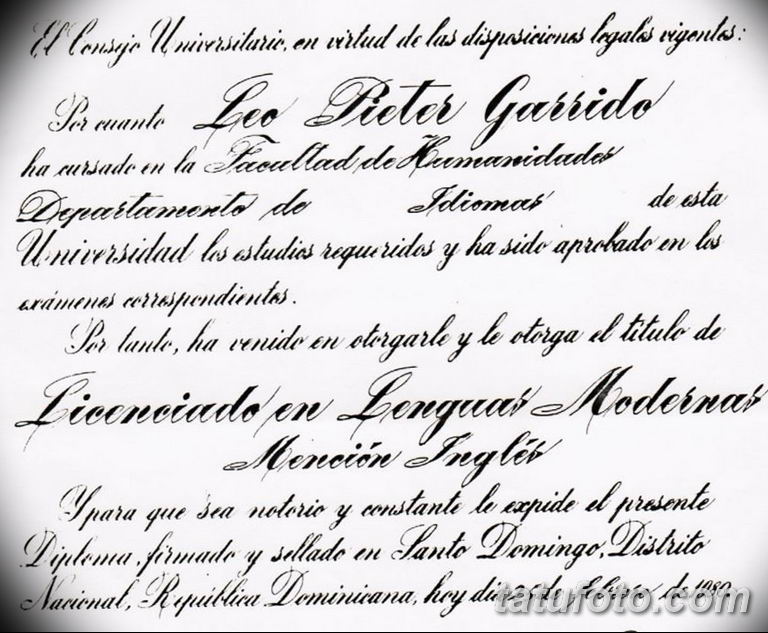 El Consejo Universitario, en virtud de las disposiciones legales vigentes:
Por cuanto Leo Pieter Garrido
ha cursado en la Facultad de Humanidades
Departamento de Idiomas de esta
Universidad los estudios requeridos y ha sido aprobado en los
exámenes correspondientes.
Por tanto, ha venido en otorgarle y le otorga el título de
Licenciado en Lenguas Modernas
Mención Inglés
Y para que sea notorio y constante le expide el presente
Diploma, firmado y sellado en Santo Domingo, Distrito
Nacional, República Dominicana, hoy día de de
tatufoto.com